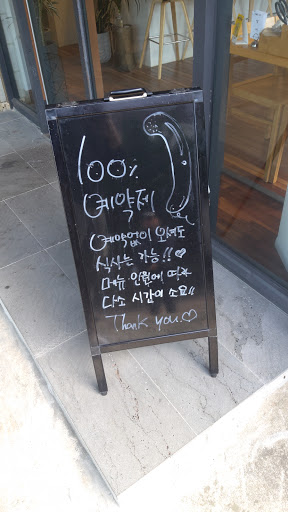 100%
예약제
예약없이 오셔도
식사는 가능!!♡
메뉴 인원에 따라
다소 시간이 소요!!
Thank you♡